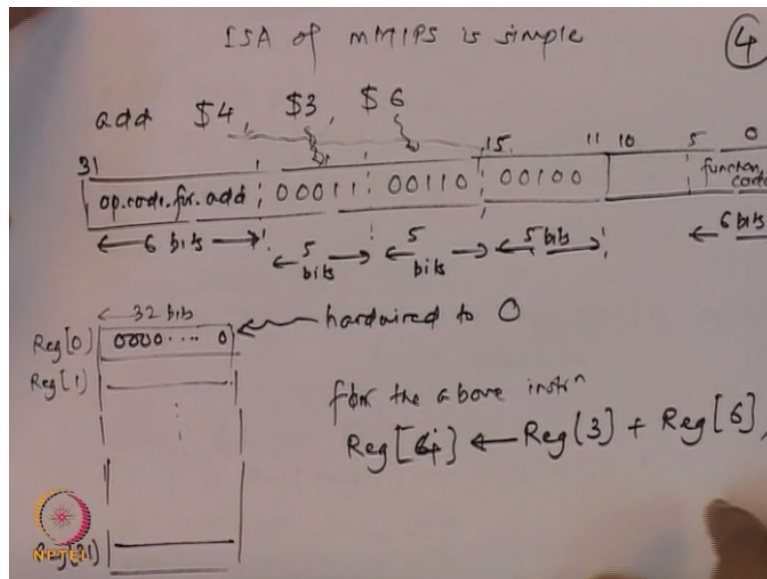 ISA of mMIPS is simple
4
add $4, $3, $6
31 15 11 10 5 0
op.code.for.add 00011 00110 00100 function code
6 bits 5 bits 5 bits 5 bits 6 bits
32 bits
Reg[0] 0000.... 0 hardwired to 0
Reg[1]
for the above instrn
Reg[4] ← Reg[3] + Reg[6],
Reg[31]
NPTEL